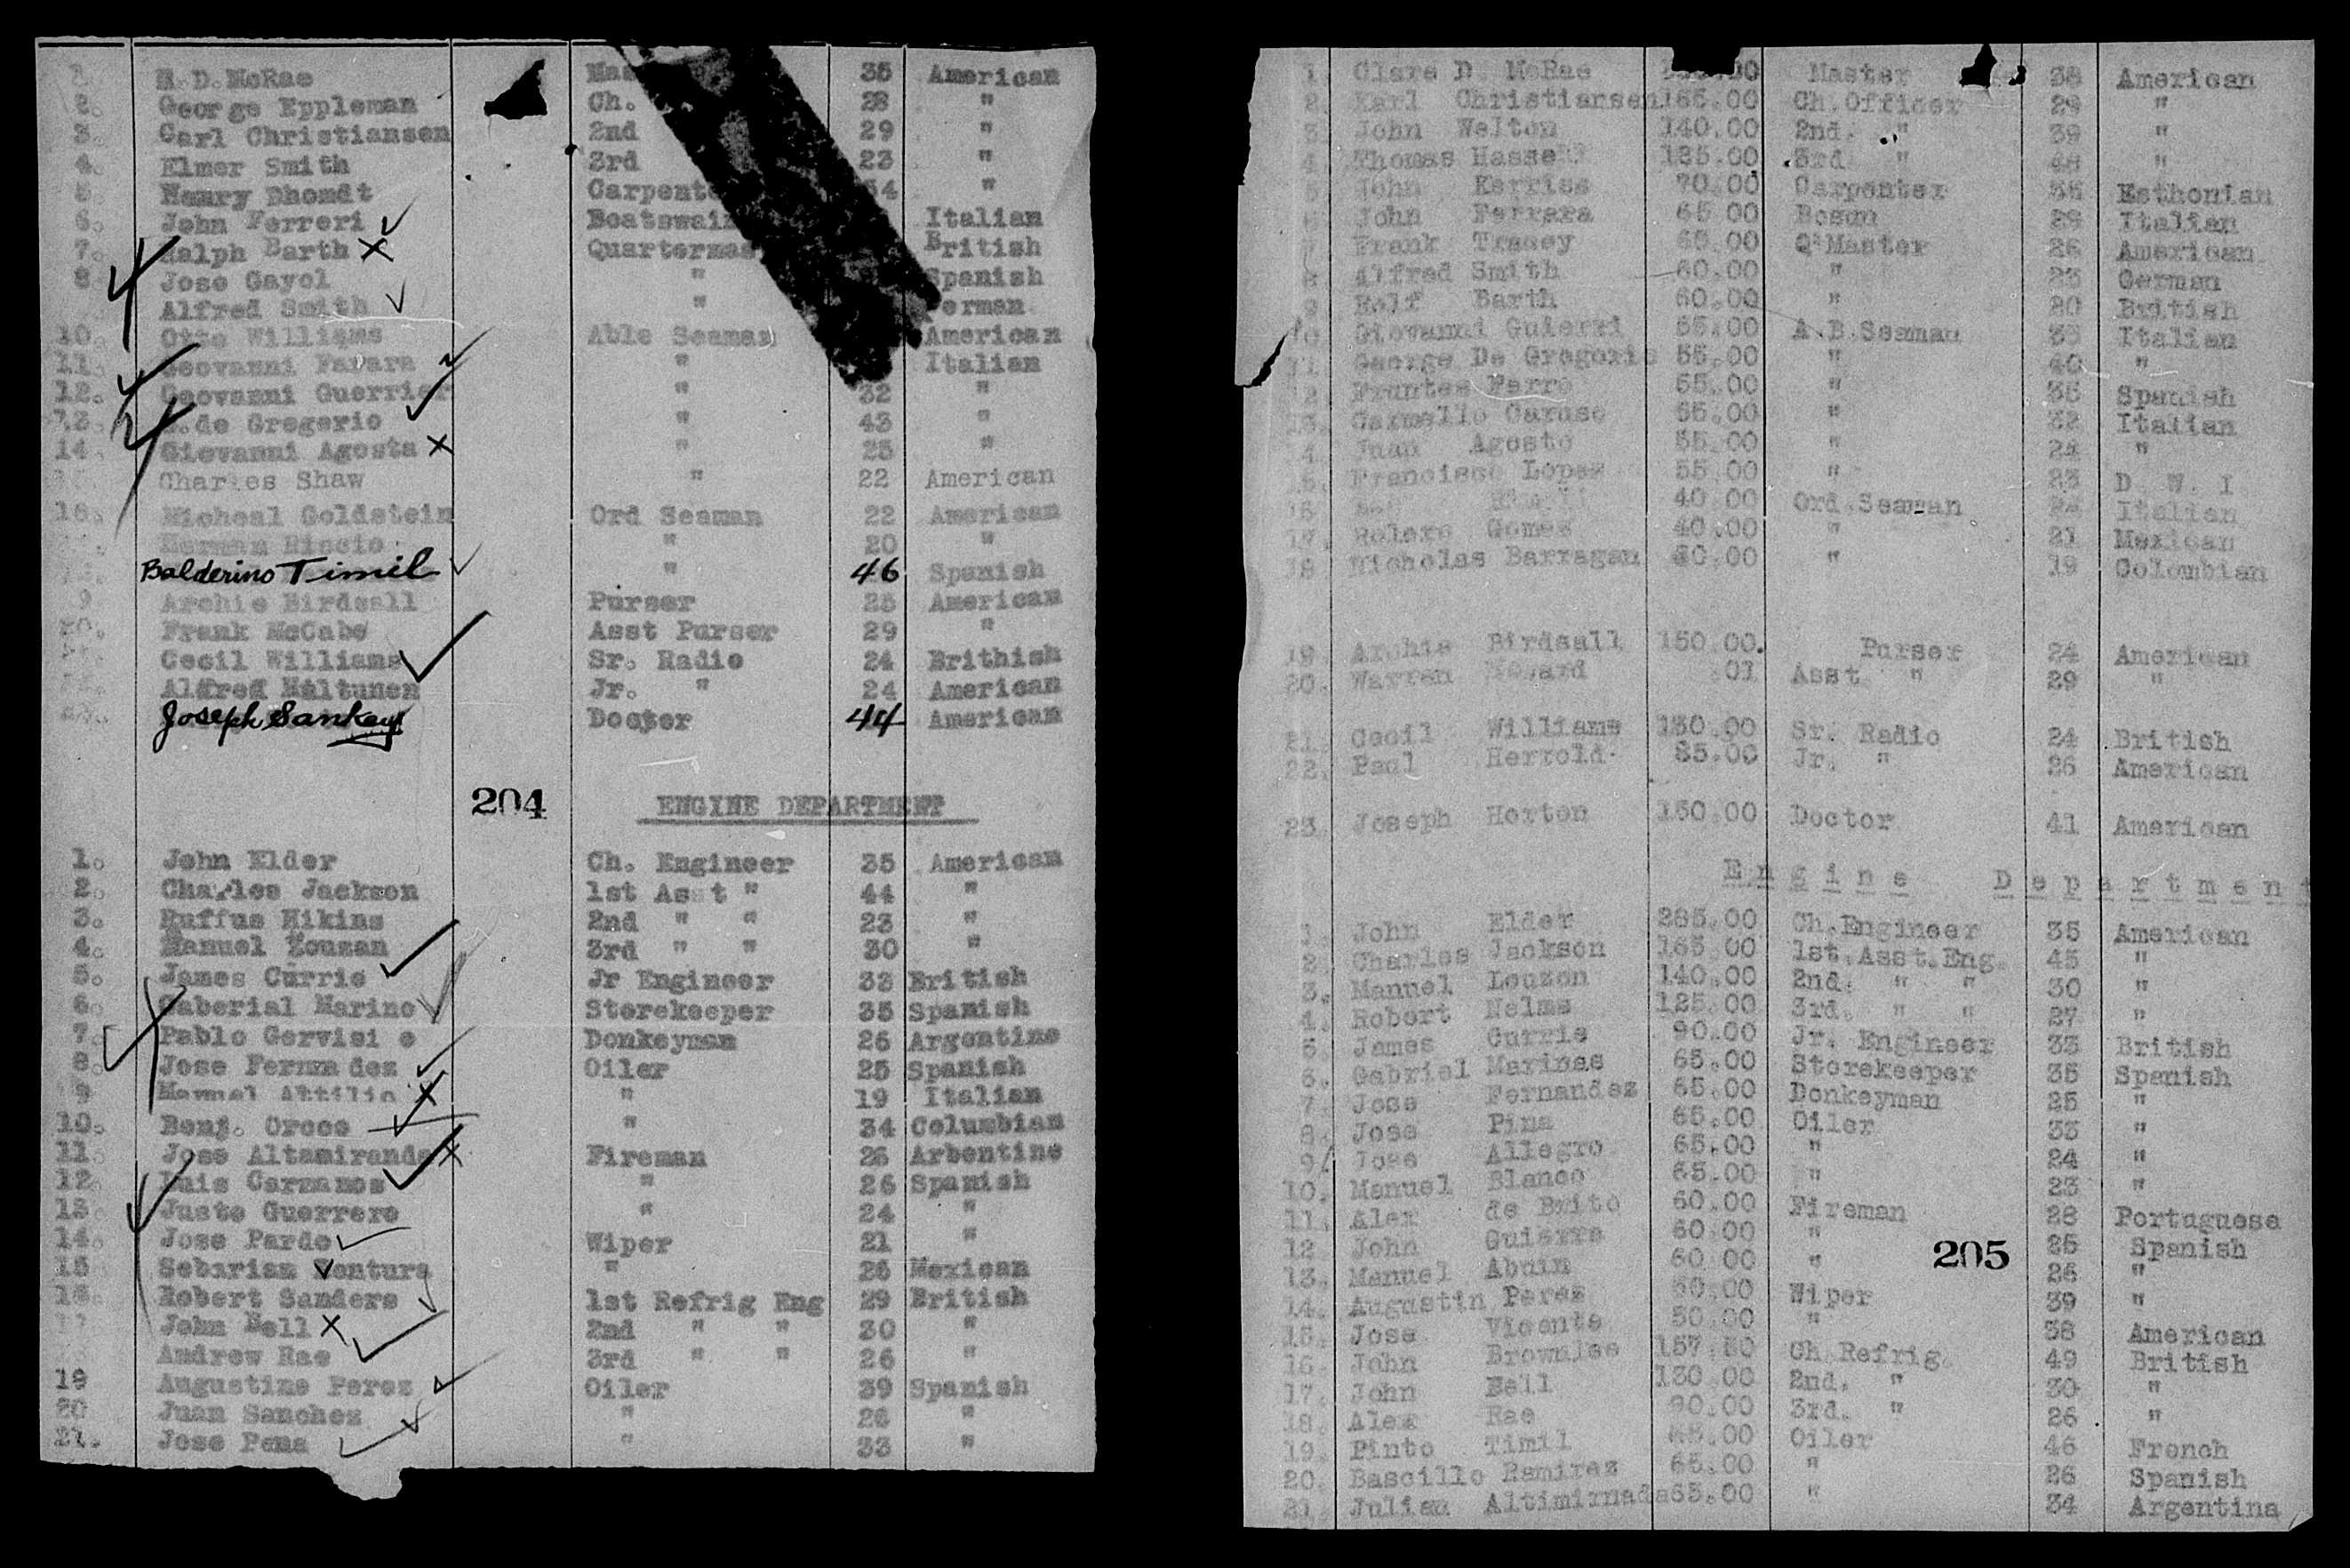 H.D. McRae 35 American
2. George Eppleman Ch. 28 "
3. Carl Christiansen 2nd 29 "
4. Elmer Smith 3rd 23 "
5. Henry Dhondt "
6. John Ferreri Boatswain Italian
7. Ralph Barth British
8 Jose Gayol " Spanish
Alfred Smith "
10. Otto Williams Able Seaman American
11. Geovanni Favara " Italian
12. Geovanni Guerrier " 32 "
13. de Gregorio " 43 "
14. Giovanni Agosta " 25 "
Charles Shaw " 22 American
16. Micheal Goldstein Ord Seaman 22 American
Herman Riccio " 20 "
Balderino Timil " 46 Spanish
9 Archie Birdsall Purser 25 American
20. Frank McCabe Asst Purser 29 "
Cecil Williams Sr. Radio 24 Brithish
Aldred Maltunen Jr. " 24 American
Joseph Sankey Doctor 44 American
204 ENGINE DEPARTMENT
1. John Elder Ch. Engineer 35 American
2. Charles Jackson 1st Asst " 44 "
3. Ruffus Hikins 2nd " " 23 "
4. Manuel Louzan 3rd " " 30 "
5. James Currie Jr Engineer 33 British
6. Gaberial Marino Storekeeper 35 Spanish
7. Pablo Gervisi o Donkeyman 26 Argentine
8. Jose Fernandez Oiler 25 Spanish
9 Manuel Attilio " 19 Italian
10. Benj. Oroco " 34 Columbian
11 Jose Altamiranda Fireman 26 Arbentine
12. Luis Carmanos " 26 Spanish
13. Juste Guerrero " 24 "
14. Jose Pardo Wiper 21 "
15 Sebarian Ventura " 26 Mexican
16. Robert Sanders 1st Refrig Eng 29 British
John Bell 2nd " " 30 "
Andrew Rae 3rd " " 26 "
19 Augustine Perez Oiler 39 Spanish
20 Juan Sanchez " 26 "
21. Jose Pena " 33 "
1. Clare D. McRae Master 38 American
2. Karl Christiansen 165.00 Ch.Officer 29 "
3. John Welton 140.00 2nd. " 39 "
4. Thomas 125.00 3rd " 48 "
5 John Kerriss 70.00 Carpenter 35 Esthonian
6 John Ferrara 65 00 Bosun 28 Italian
7 Frank Tracey 60.00 Q'Master 26 American
8 Alfred Smith 60.00 " 23 German
9 Rolf Barth 60.00 " 20 British
10 Giovanni Guierri 55.00 A.B.Seaman 33 Italian
11. George De Gregorio 55.00 " 40 "
12. Fruntes Ferro 55.00 " 35 Spanish
13. Carmello Caruso 55.00 " 32 Italian
14. Juan Agosto 55.00 " 24 "
15. Francisco Lopez 55.00 " 23 D. W. I
16 40.00 Ord.Seaman Italian
17. Gomes 40.00 " 21 Mexican
18 Nicholas Barragan 40.00 " 19 Colombian
19. Archie Birdsall 150.00. Purser 24 American
20. Warren Howard .01 Asst " 29 "
21. Cecil Williams 130.00 Sr. Radio 24 British
22. Paul Herrold 85.00 Jr. " 26 American
23. Joseph Horton 150.00 Doctor 41 American
Engine Department
1. John Elder 285.00 Ch.Engineer 35 American
2. Charles Jackson 165.00 1st.Asst.Eng. 45 "
3. Manuel Louzon 140.00 2nd. " " 30 "
4. Robert Nelms 125.00 3rd. " " 27 "
5. James Currie 90.00 Jr. Engineer 33 British
6. Gabriel Marinas 65.00 Storekeeper 35 Spanish
7. Jose Fernandez 65.00 Donkeyman 25 "
8. Jose Pina 65.00 Oiler 33 "
9. Jose Allegro 65.00 " 24 "
10. Manuel Blanco 65.00 " 23 "
11. Alex de Brito 60.00 Fireman 28 Portuguese
12 John Guierra 60.00 " 25 Spanish
205
13. Manuel Abuin 60.00 " 26 "
14. Augustin Perez 50.00 Wiper 39 "
15. Jose Vicente 50.00 " 38 American
16. John Brownlee 157.50 Ch.Refrig. 49 British
17. John Bell 130.00 2nd. " 30 "
18. Alex Rae 90.00 3rd. " 26 "
19. Pinto Timil 65.00 Oiler 46 French
20. Bascillo Ramirez 65.00 " 26 Spanish
21. Julian Altimirnada 65.00 " 34 Argentina